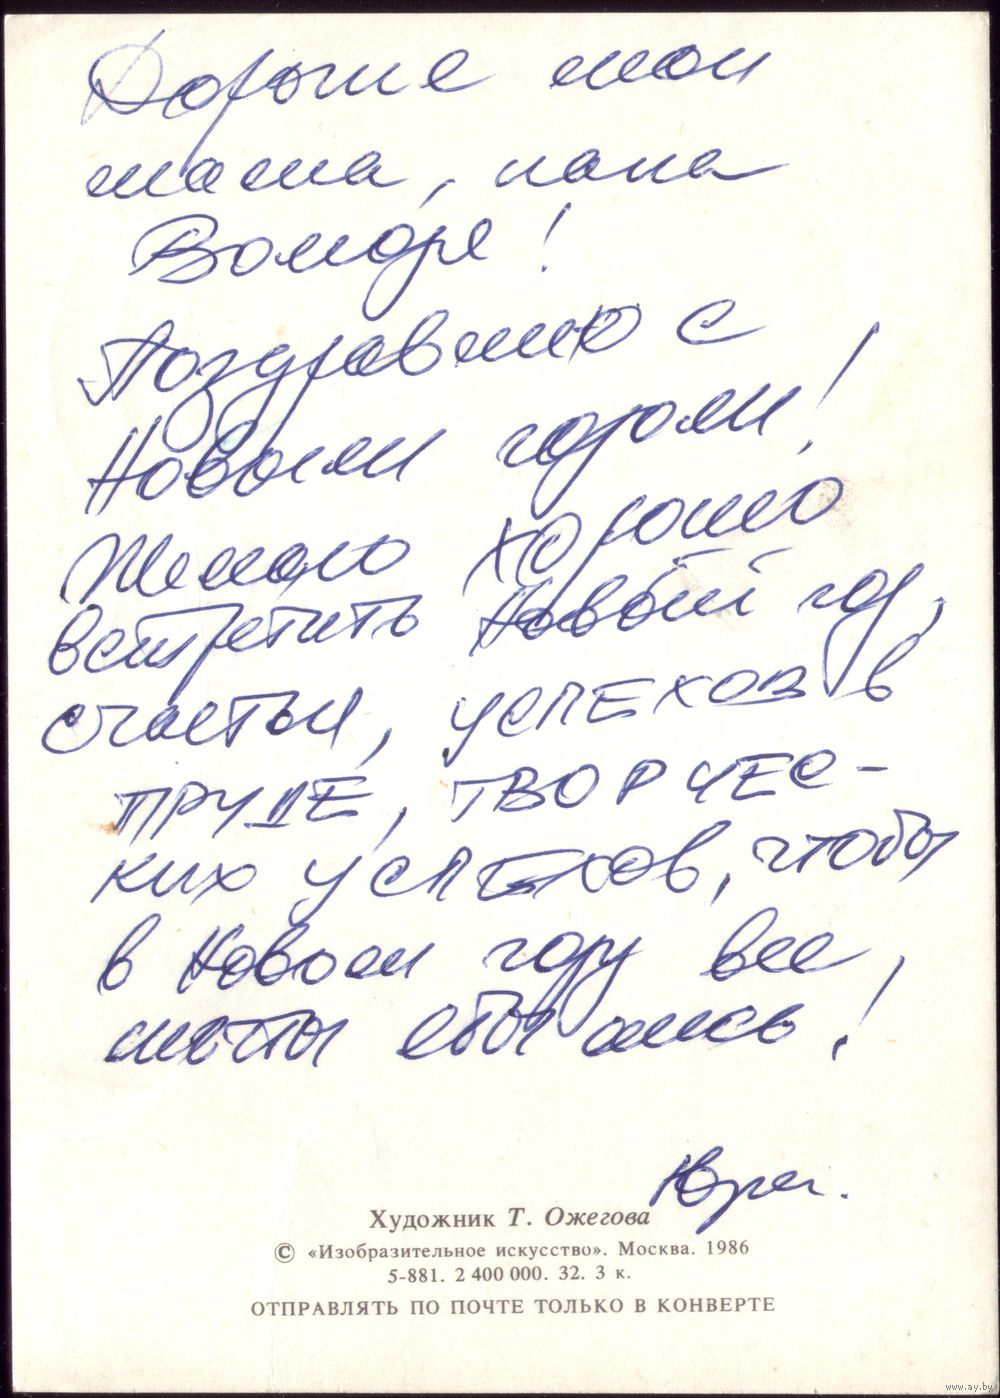 Дорогие мои
мама, папа
Володя!
Поздравляю с
Новым годом!
Желаю хорошо
встретить Новый год,
счастья, успехов в
труде, творчес-
ких успехов, чтобы
в Новом году все
мечты сбылись!
Юра.
Художник Т. Ожегова
© «Изобразительное искусство». Москва. 1986
5-881. 2 400 000. 32. 3 к.
ОТПРАВЛЯТЬ ПО ПОЧТЕ ТОЛЬКО В КОНВЕРТЕ
www.ay.by